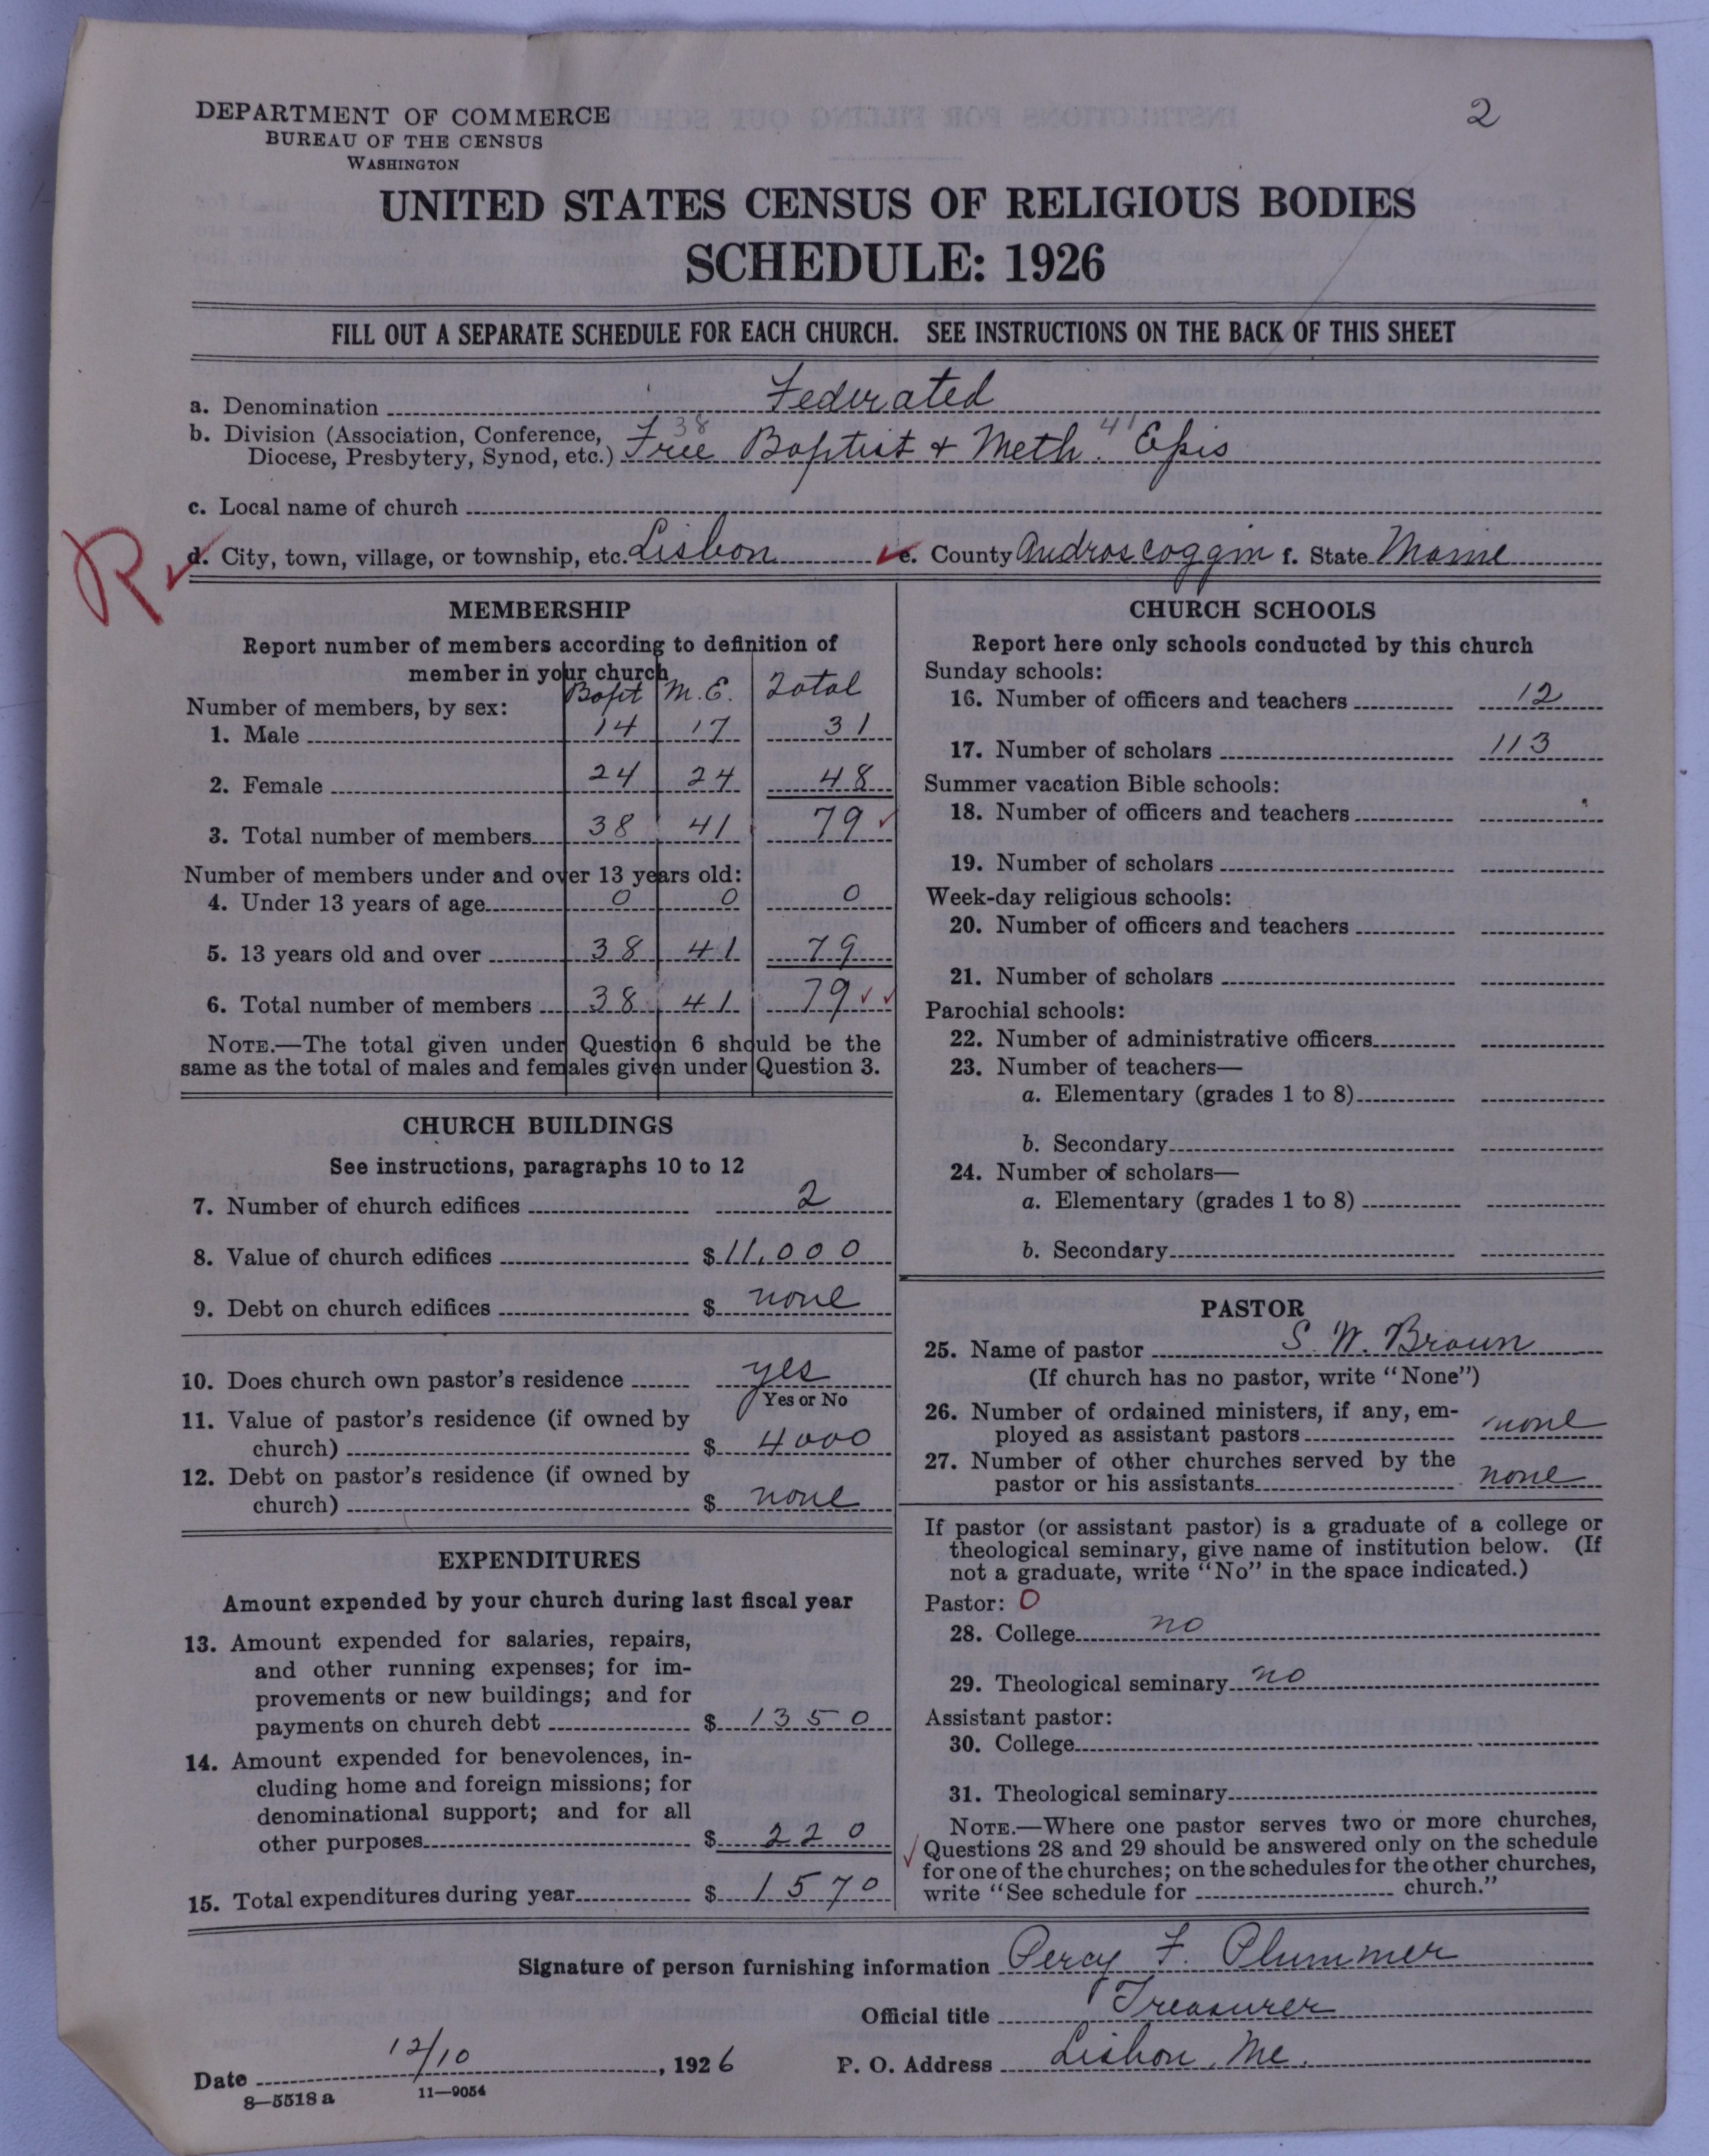 2
DEPARTMENT OF COMMERCE
BUREAU OF THE CENSUS
WASHINGTON
UNITED STATES CENSUS OF RELIGIOUS BODIES
SCHEDULE: 1926
FILL OUT A SEPARATE SCHEDULE FOR EACH CHURCH. SEE INSTRUCTIONS ON THE BACK OF THIS SHEET
a. Denomination Federated
38 41
b. Division (Association, Conference, Diocese, Presbytery, Synod, etc.) Free Baptist + Meth. Epis
c. Local name of church
R
d. City, town, village, or township, etc. Lisbon e. County Androscoggin f. State Maine
MEMBERSHIP
Report number of members according to definition of
member in your church
Bapt M.E. Total
Number of members, by sex:
1. Male 14 17 31
2. Female 24 24 48
3. Total number of members 38 41 79
Number of members under and over 13 years old:
4. Under 13 years of age 0 0 0
5. 13 years old and over 38 41 79
6. Total number of members 38 41 79
NOTE.—The total given under Question 6 should be the
same as the total of males and females given under Question 3.
CHURCH BUILDINGS
See instructions, paragraphs 10 to 12
7. Number of church edifices 2
8. Value of church edifices $ 11,000
9. Debt on church edifices $ none
10. Does church own pastor's residence yes
Yes or No
11. Value of pastor's residence (if owned by
church) $ 4000
12. Debt on pastor's residence (if owned by
church) $ none
EXPENDITURES
Amount expended by your church during last fiscal year
13. Amount expended for salaries, repairs,
and other running expenses; for im-
provements or new buildings; and for
payments on church debt $ 1350
14. Amount expended for benevolences, in-
cluding home and foreign missions; for
denominational support; and for all
other purposes $ 220
15. Total expenditures during year $ 1570
CHURCH SCHOOLS
Report here only schools conducted by this church
Sunday schools:
16. Number of officers and teachers 12
17. Number of scholars 113
Summer vacation Bible schools:
18. Number of officers and teachers
19. Number of scholars
Week-day religious schools:
20. Number of officers and teachers
21. Number of scholars
Parochial schools:
22. Number of administrative officers
23. Number of teachers—
a. Elementary (grades 1 to 8)
b. Secondary
24. Number of scholars—
a. Elementary (grades 1 to 8)
b. Secondary
PASTOR
25. Name of pastor S. W. Brown
(If church has no pastor, write "None")
26. Number of ordained ministers, if any, em-
ployed as assistant pastors none
27. Number of other churches served by the
pastor or his assistants none
If pastor (or assistant pastor) is a graduate of a college or
theological seminary, give name of institution below. (If
not a graduate, write "No" in the space indicated.)
Pastor: 0
28. College no
29. Theological seminary no
Assistant pastor:
30. College
31. Theological seminary
NOTE.—Where one pastor serves two or more churches,
Questions 28 and 29 should be answered only on the schedule
for one of the churches; on the schedules for the other churches,
write "See schedule for church."
Signature of person furnishing information Percy F. Plummer
Official title Treasurer
Date 12/10, 1926 P. O. Address Lisbon, Me.
8—5518 a 11—9054